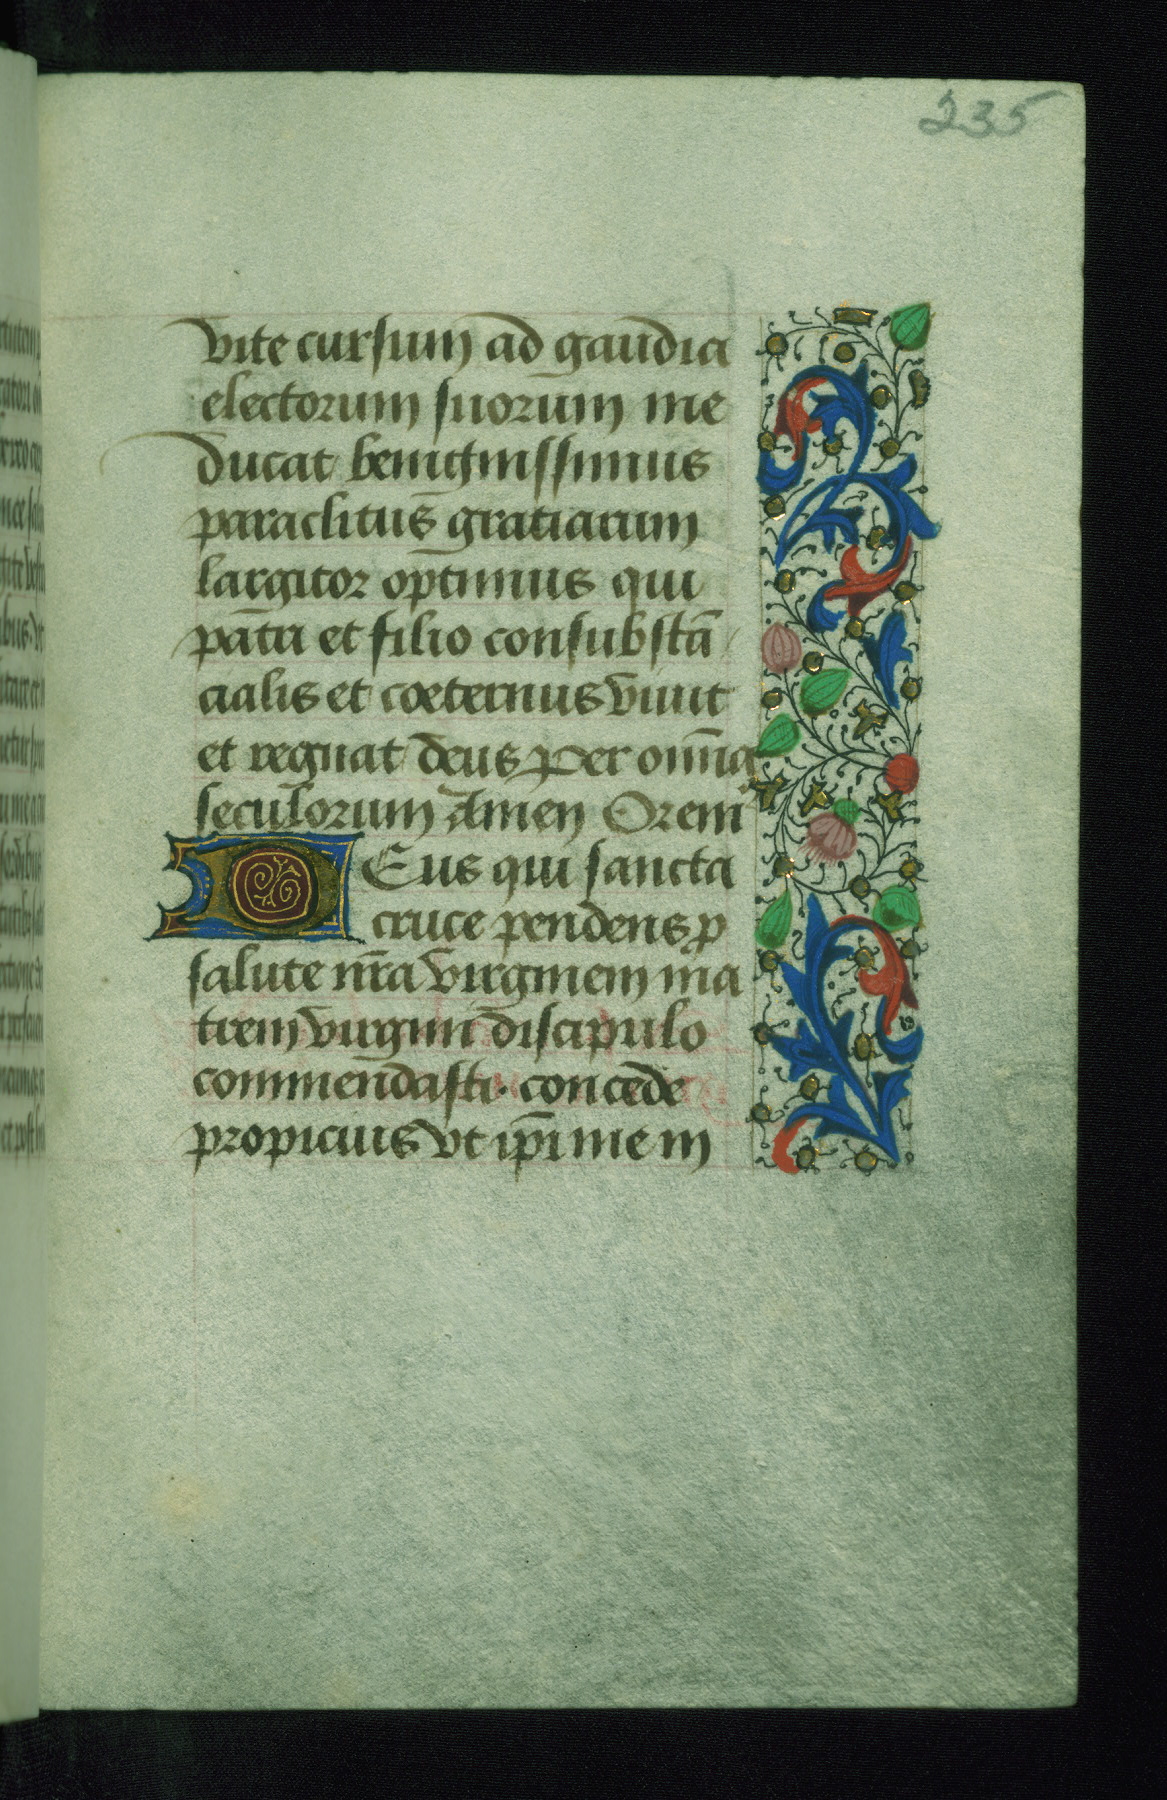 235
vite cursum ad gaudia
electorum suorum me
ducat benignissimus
paraclitus gratiarum
largitor optimus qui
pat̄ri et filio consubstā
cialis et coeternus viuit
et regnat deus per om̄ia
seculorum Amen Orem
DEus qui sancta
cruce pendens ꝓ
salute nr̄a virginem ma
trem virgini discipulo
commendasti. concede
propicius vt ip̄i me in